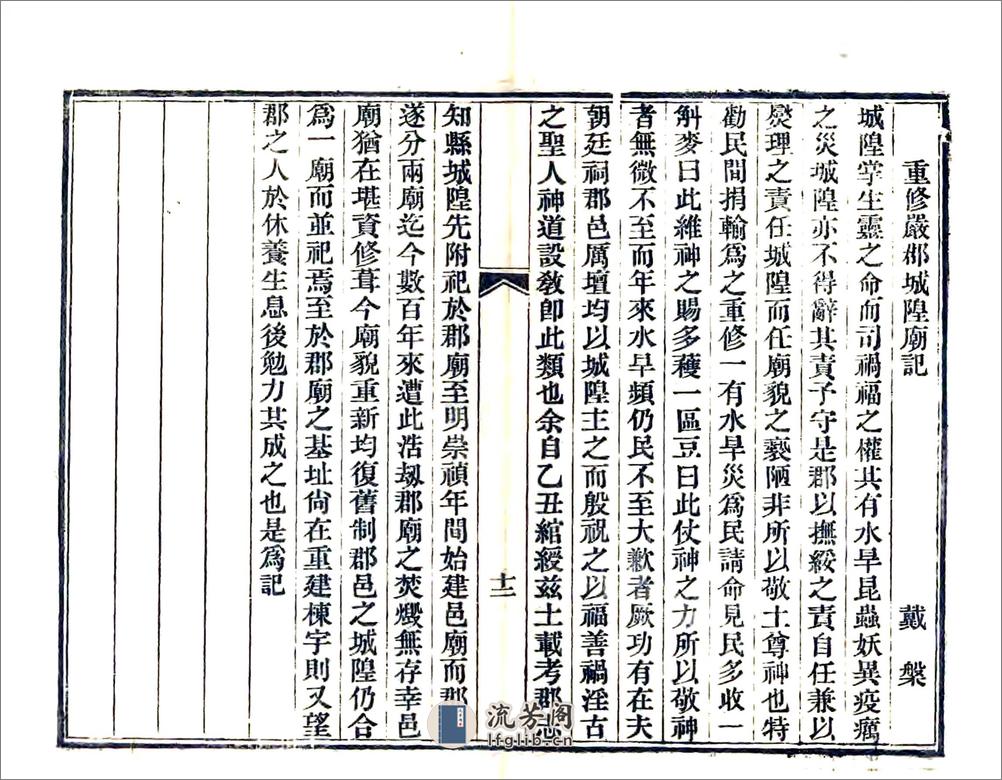 重修嚴郡城隍廟記
戴槃
城隍掌生靈之命而司禍福之權其有水旱昆蟲妖異疫癘
之災城隍亦不得辭其責予守是郡以撫綏之責自任兼以
燮理之責任城隍而任廟貌之褻陋非所以敬土尊神也特
勸民間捐輸爲之重修一有水旱災爲民請命見民多收一
斛麥曰此維神之賜多穫一區豆曰此仗神之力所以敬神
者無微不至而年來水旱頻仍民不至大歉者厥功有在夫
朝廷祠郡邑厲壇均以城隍主之而殷祝之以福善禍淫古
之聖人神道設敎卽此類也余自乙丑綰綬兹土載考郡志
十二
知縣城隍先附祀於郡廟至明崇禎年間始建邑廟而郡
遂分兩廟迄今數百年來遭此浩刼郡廟之焚燬無存幸邑
廟猶在堪資修葺今廟貌重新均復舊制郡邑之城隍仍合
爲一廟而並祀焉至於郡廟之基址尙在重建棟宇則又望
郡之人於休養生息後勉力其成之也是爲記
流芳阁
lfglib.cn